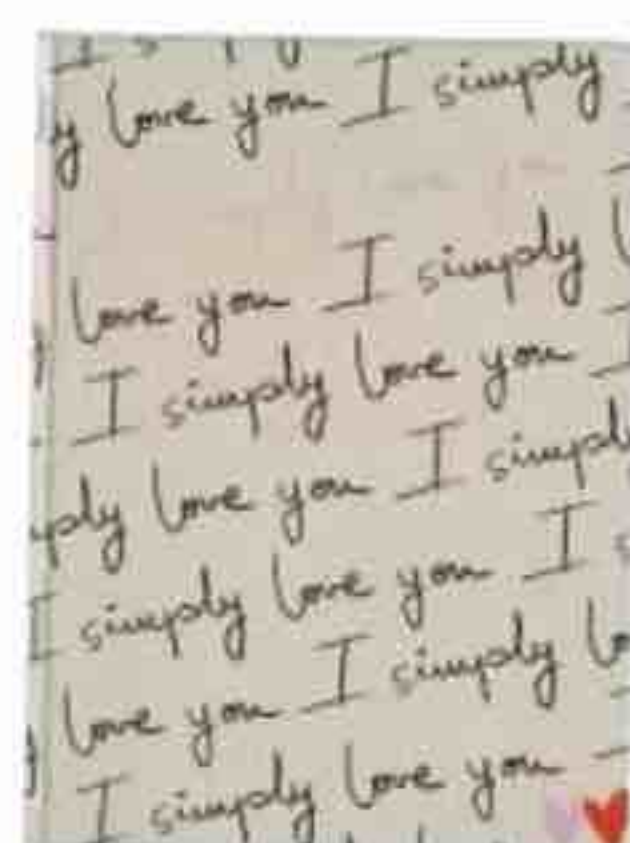 y love you I simply
love you I simply
I simply love you
ply love you I simply
I simply love you I s
love you I simply lo
I simply love you